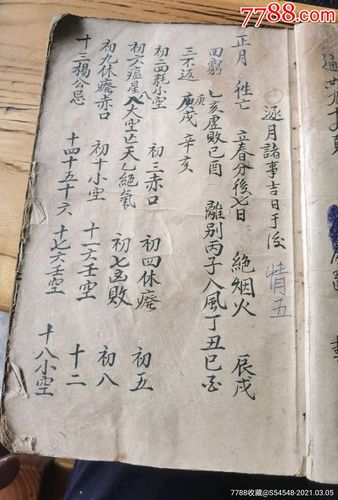 7788.com
逐月諸事吉日于後
情五
正月 徃亡 立春分後七日 絕烟火 辰戌
四窮 乙亥虛敗己酉 離別丙子八風丁丑已
三不返 庚戌 辛亥
初二耗小空 初三赤口 初四休廢 初五
初六瘟星 八大空亡天乙絕氣 初七凶敗 初八
初九休廢赤口 初十小空 十一六壬空 十二
十三楊公忌 十四十五十六 十七六壬空 十八小空
7788收藏@S54548-2021.03.05